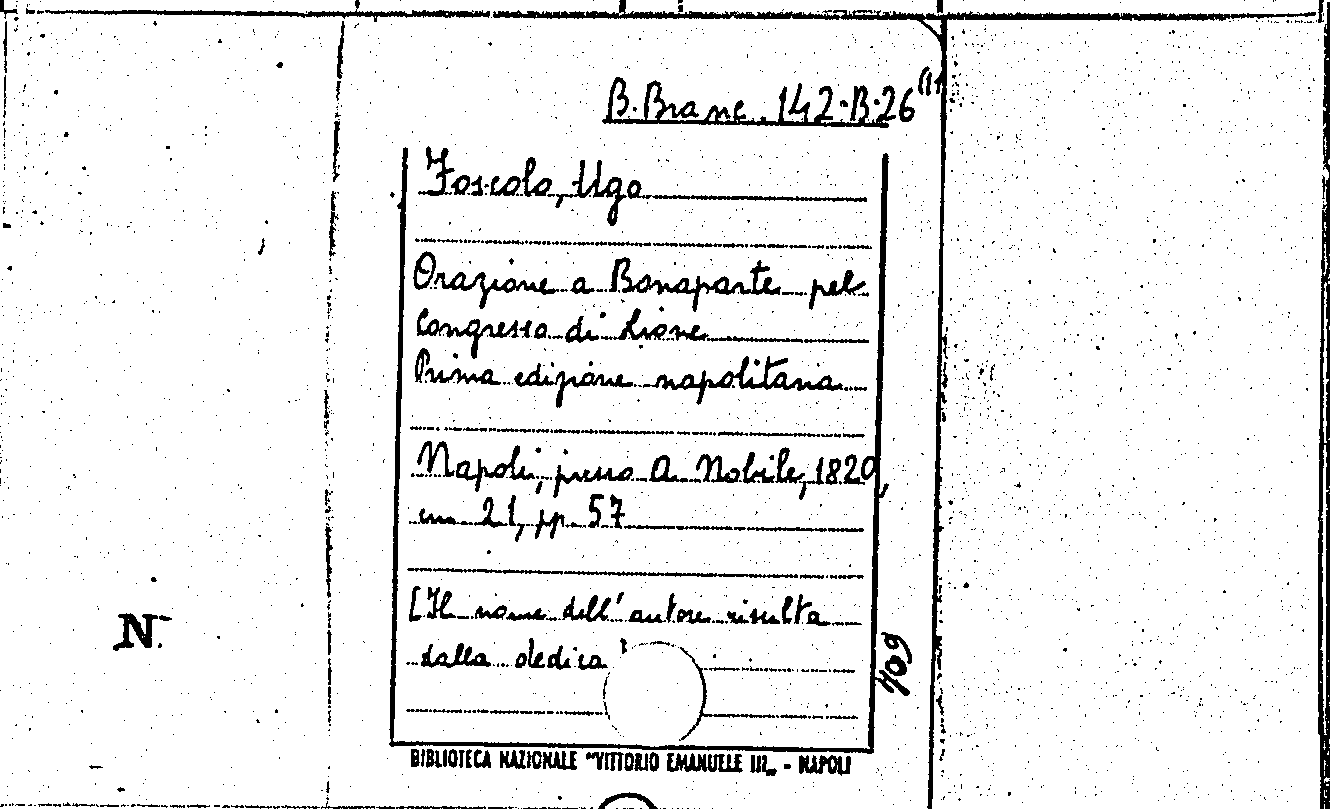 B. Branc. 142-B-26(11
Foscolo, Ugo
Orazione a Bonaparte pel
Congresso di Lione
Prima edizione napolitana
Napoli, presso A. Nobile, 1820,
cm 21, pp. 57
[Il nome dell'autore risulta
dalla dedica]
N.
409
BIBLIOTECA NAZIONALE "VITTORIO EMANUELE III„ - NAPOLI